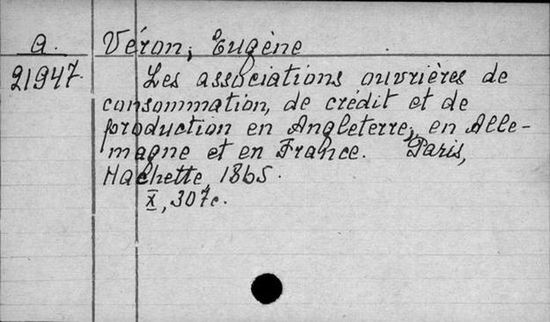 a. Véron, Eugène
21947. Les associations ouvrières de
consommation, de crédit et de
production en Angleterre, en Alle-
magne et en France. Paris,
Hachette, 1865.
X, 307c.